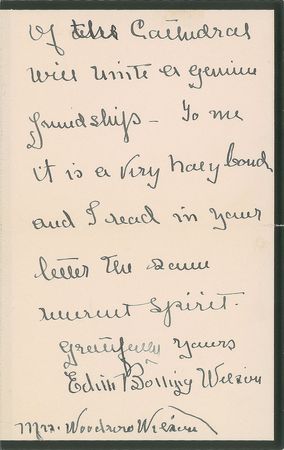 of this Cathedral
will unite a genuine
friendship - To me
it is a very holy bond
and I read in your
letter the same
reverent spirit.
Gratefully yours
Edith Bolling Wilson
Mrs. Woodrow Wilson